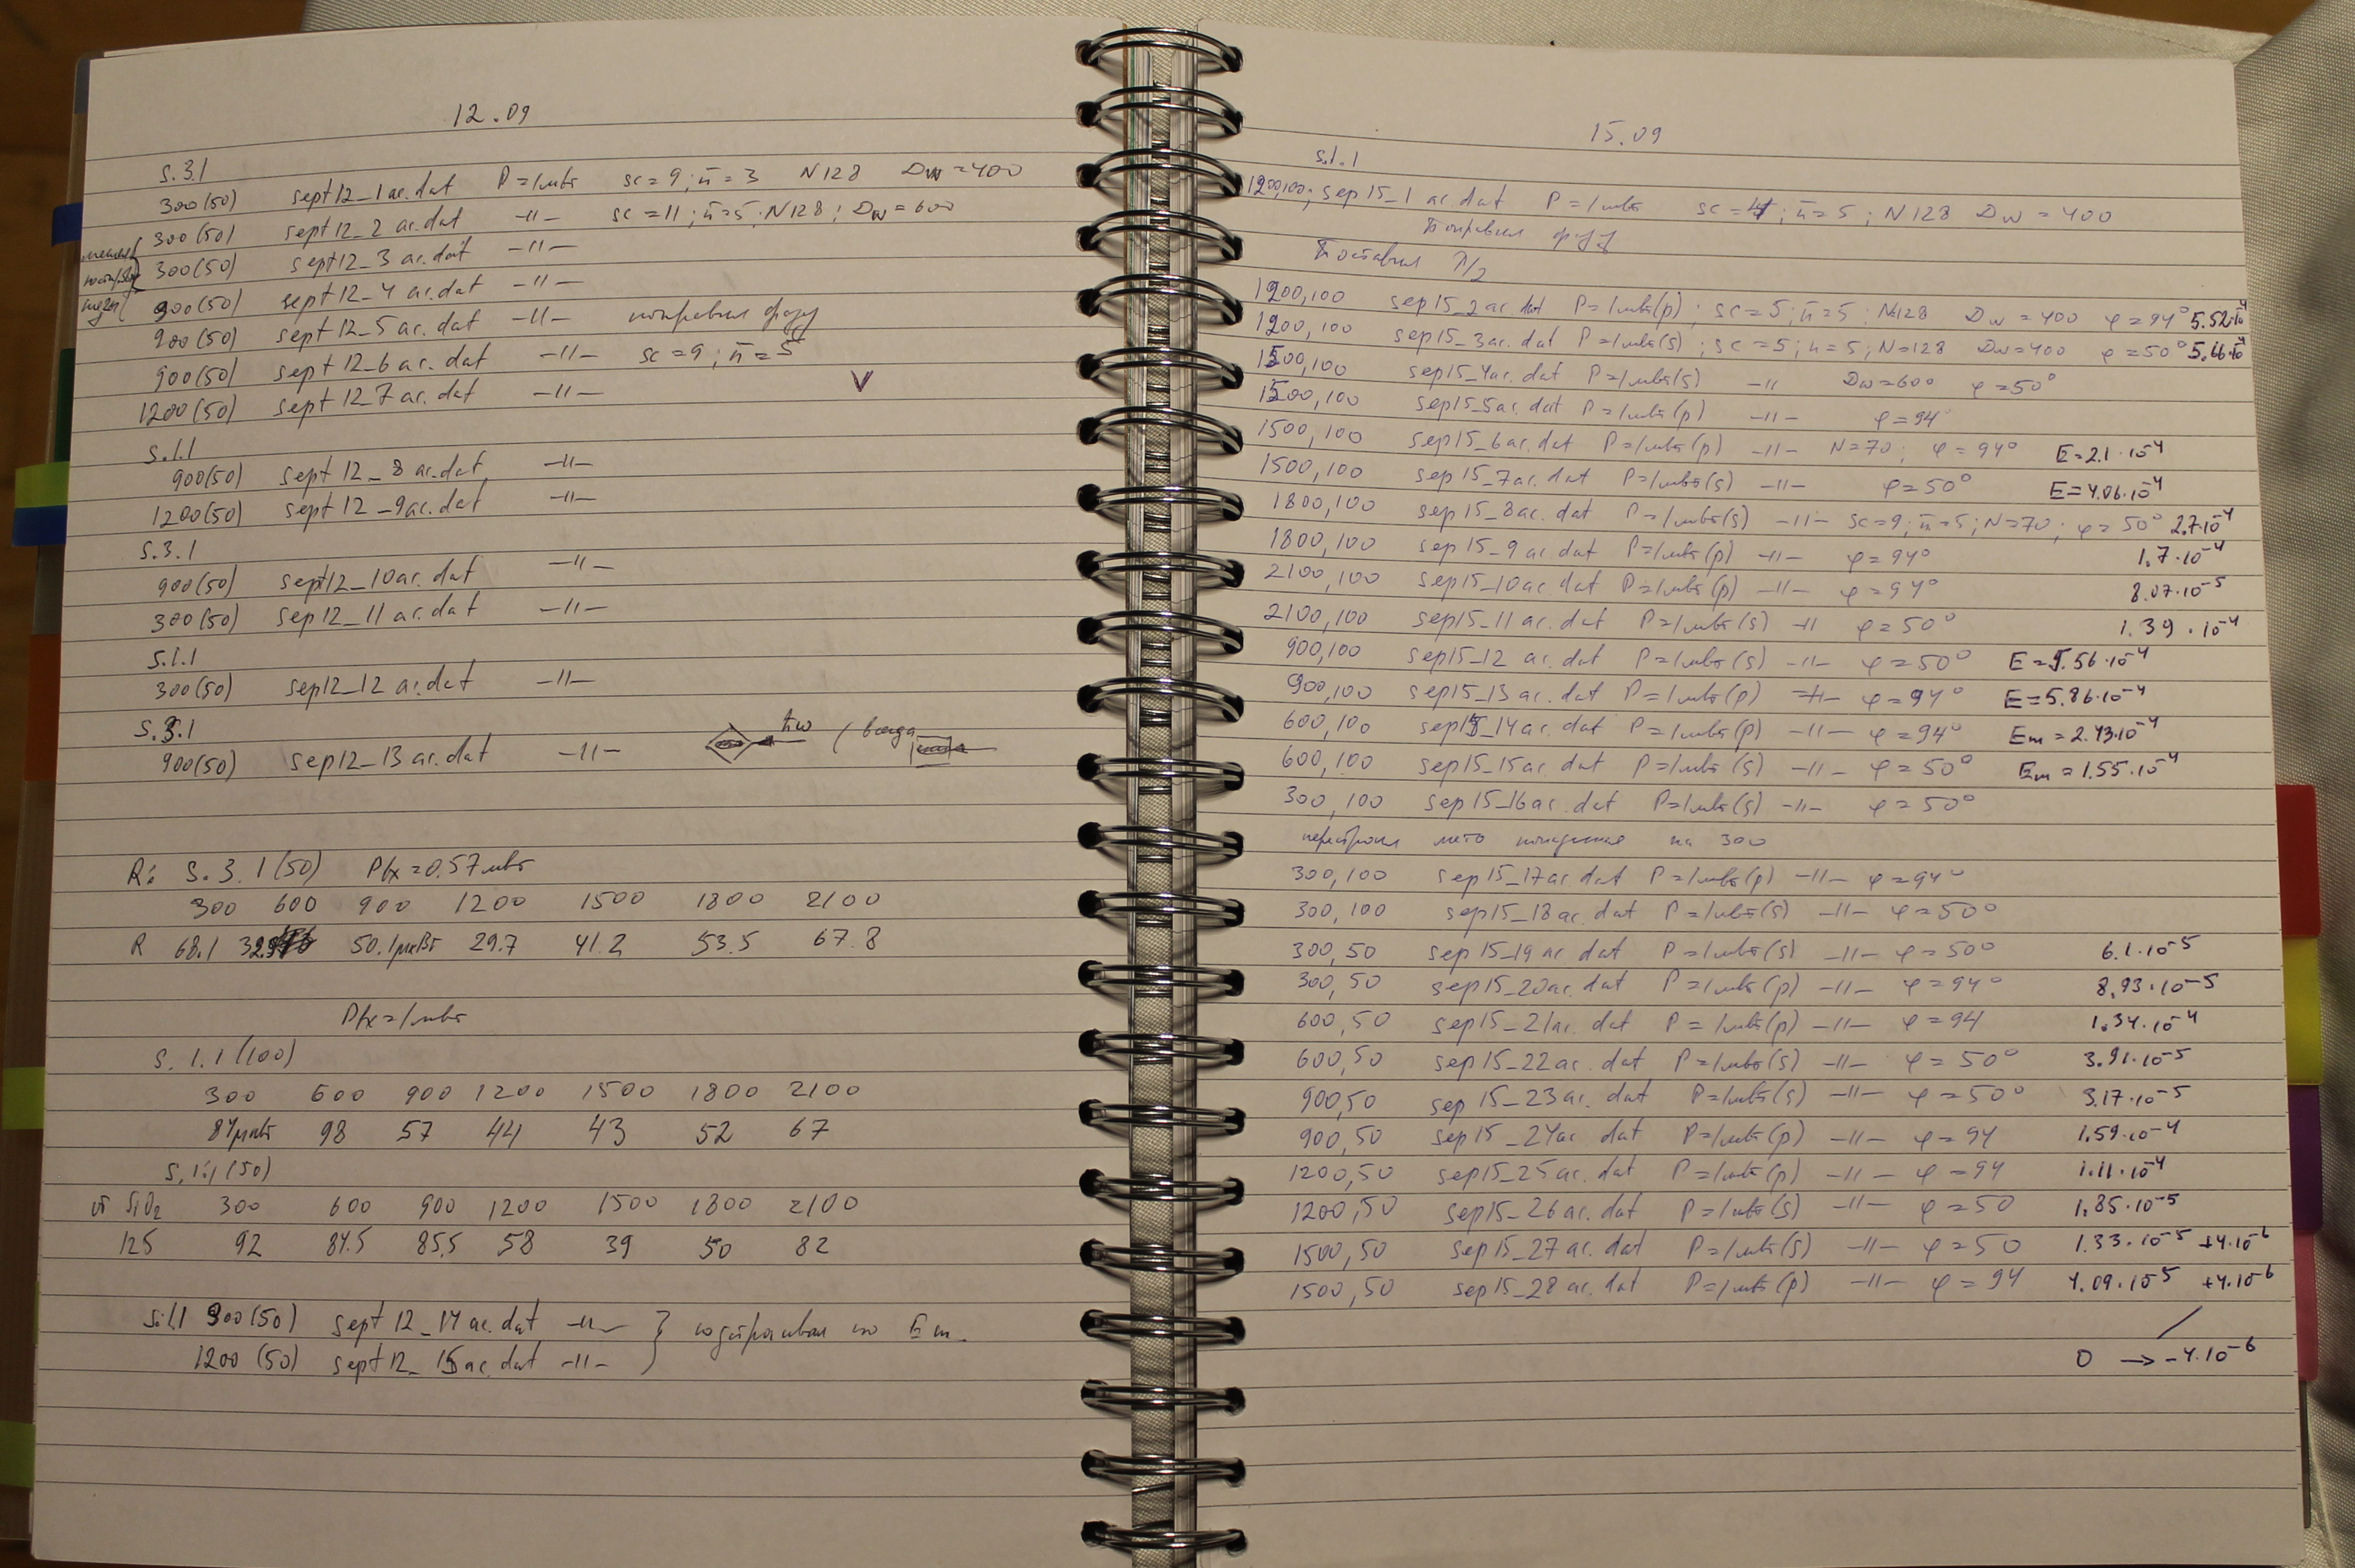 12.09
S.3.1
300(50) sept12_1ac.dat P=1мВт sc=9; n̄=3 N128 Dw=400
300(50) sept12_2ac.dat -11- sc=11; n̄=5; N128; Dw=600
300(50) sept12_3ac.dat -11-
900(50) sept12_4ac.dat -11-
900(50) sept12_5ac.dat -11- поправил
900(50) sept12_6ac.dat -11- sc=9; n̄=5
1200(50) sept12_7ac.dat -11- V
S.1.1
900(50) sept12_8ac.dat -11-
1200(50) sept12_9ac.dat -11-
S.3.1
900(50) sept12_10ac.dat -11-
300(50) sep12_11ac.dat -11-
S.1.1
300(50) sep12_12ac.dat -11-
S.3.1
900(50) sep12_13ac.dat -11- ħω
R: S.3.1(50) Pfx=0.57мВт
300 600 900 1200 1500 1800 2100
R 68.1 50.1мкВт 29.7 41.2 53.5 67.8
Pfx=1мВт
S.1.1(100)
300 600 900 1200 1500 1800 2100
84мкВт 98 57 44 43 52 67
S.1.1(50)
от SiO2 300 600 900 1200 1500 1800 2100
125 92 84.5 85.5 58 39 50 82
S.1.1 900(50) sept12_14ac.dat -11- } подстраивал по Em.
1200(50) sept12_15ac.dat -11-
15.09
S.1.1
1200,100; sep15_1ac.dat P=1мВт sc=4; n̄=5; N128 Dw=400
Поправил
Поставил λ/2
1200,100 sep15_2ac.dat P=1мВт(p); sc=5; n̄=5; N128 Dw=400 φ=94° 5.52·10⁻⁴
1200,100 sep15_3ac.dat P=1мВт(s); sc=5; n=5; N=128 Dw=400 φ=50° 5.66·10⁻⁴
1500,100 sep15_4ac.dat P=1мВт(s) -11 Dw=600 φ=50°
1500,100 sep15_5ac.dat P=1мВт(p) -11- φ=94°
1500,100 sep15_6ac.dat P=1мВт(p) -11- N=70; φ=94° E=2.1·10⁻⁴
1500,100 sep15_7ac.dat P=1мВт(s) -11- φ=50° E=4.06·10⁻⁴
1800,100 sep15_8ac.dat P=1мВт(s) -11- sc=9; n̄=5; N=70; φ=50° 2.7·10⁻⁴
1800,100 sep15_9ac.dat P=1мВт(p) -11- φ=94° 1.7·10⁻⁴
2100,100 sep15_10ac.dat P=1мВт(p) -11- φ=94° 8.07·10⁻⁵
2100,100 sep15_11ac.dat P=1мВт(s) -11 φ=50° 1.39·10⁻⁴
900,100 sep15_12ac.dat P=1мВт(s) -11- φ=50° E=5.56·10⁻⁴
900,100 sep15_13ac.dat P=1мВт(p) -11- φ=94° E=5.86·10⁻⁴
600,100 sep15_14ac.dat P=1мВт(p) -11- φ=94° Em=2.43·10⁻⁴
600,100 sep15_15ac.dat P=1мВт(s) -11- φ=50° Em=1.55·10⁻⁴
300,100 sep15_16ac.dat P=1мВт(s) -11- φ=50°
на 300
300,100 sep15_17ac.dat P=1мВт(p) -11- φ=94°
300,100 sep15_18ac.dat P=1мВт(s) -11- φ=50°
300,50 sep15_19ac.dat P=1мВт(s) -11- φ=50° 6.1·10⁻⁵
300,50 sep15_20ac.dat P=1мВт(p) -11- φ=94° 8.93·10⁻⁵
600,50 sep15_21ac.dat P=1мВт(p) -11- φ=94 1.34·10⁻⁴
600,50 sep15_22ac.dat P=1мВт(s) -11- φ=50° 3.91·10⁻⁵
900,50 sep15_23ac.dat P=1мВт(s) -11- φ=50° 3.17·10⁻⁵
900,50 sep15_24ac dat P=1мВт(p) -11- φ=94 1.59·10⁻⁴
1200,50 sep15_25ac.dat P=1мВт(p) -11- φ=94 1.11·10⁻⁴
1200,50 sep15_26ac.dat P=1мВт(s) -11- φ=50 1.85·10⁻⁵
1500,50 sep15_27ac.dat P=1мВт(s) -11- φ=50 1.33·10⁻⁵ +4·10⁻⁶
1500,50 sep15_28ac.dat P=1мВт(p) -11- φ=94 4.09·10⁻⁵ +4·10⁻⁶
0 → -4·10⁻⁶